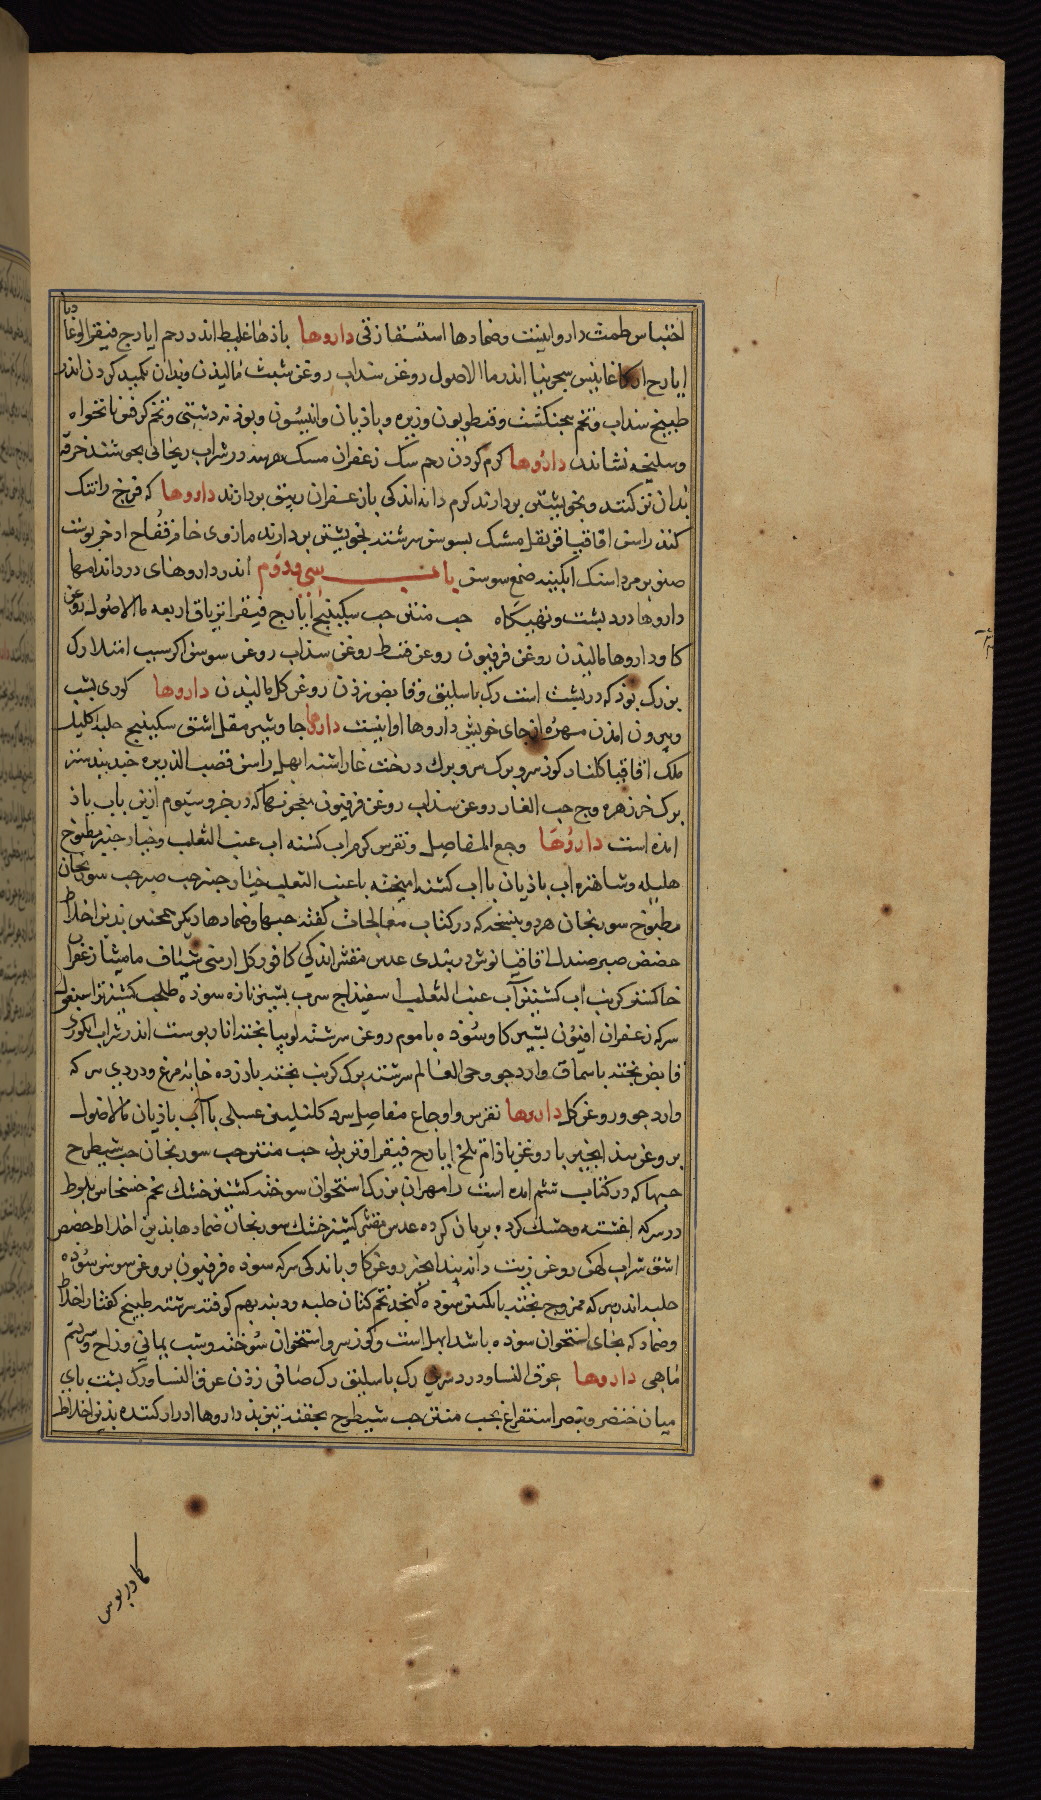 احتباس طمث دارو اینست وضمادها استسقا زقی داروها باذهاء غلیظ اندر رحم ایارج فیقرا لوغاذیا
ایارج ارکاغانیس سجرنیا اندر ماالاصول روغن سداب روغن شبث مالیذن وبدان تکمید کردن اندر
طبیخ سداب وتخم پنجنکشت وقنطوریون وزیره وباذیان وانیسون وبوذنه دشتی وتخم کرفس نانخواه
وسلیخه نشاندن داروها کرم کردن رحم سک زعفران مسک هرسه در شراب ریحانی بجوشند خرقه
بدان تر کنند وبخویشتن بردارند کرم دانه اندکی بازعفران بردارند داروها که فرج را تنک
کند راسن اقاقیا قرنفل مشک بسوسن سرشته بخویشتن بردارند مازوی خام فقاح اذخر پوست
صنوبر مرداسنک ابکینه صمغ سوسن باب سی ودوم اندر داروهای درد اندامها
داروها درد پشت وتهیکاه حب منتن حب سکبینج ایارج فیقرا تریاق اربعه ماالاصول روغن
کاو داروها مالیذن روغن فرفیون روغن قسط روغن سذاب روغن سوسن اکر سبب امتلا رک
بزرک بوذ که در پشت است رک باسلیق وقابض زذن روغن کل مالیدن داروها کوزی پشت
وبیرون امذن مهره از جای خویش داروها او اینست داروها جاوشیر مقل اشق سکبینج حلبه اکلیل
ملک اقاقیا کلنار کوز سرو برک سرو برک درخت غار اشنه ابهل راسن قصب الذریره
برک خرزهره وج حب الغار روغن سداب روغن فرفیون معجونها که در جزو سیوم ازین باب یاذ
امده است داروها وجع المفاصل ونقرس کرم اب کشنه اب عنب الثعلب وخیارجنبر مطبوخ
هلیله وشاهتره اب باذیان بااب کشنه امیخته باعنب الثعلب خیارجنبر حب صبر حب سورنجان
مطبوخ سورنجان هر دو بنسخه که در کتاب معالجات کفته حبها وضمادها دیکر همچنین بذین اخلاط
حضض صبر صندل اقاقیا نوش دربندی عدس مقشر اندکی کافور کل ارمنی شیاف مامیثا زعفران
خاکستر کرنب اب کشنیز آب عنب الثعلب اسفیذاج سرب پشیر تازه سوذه طحلب کشنیز تر اسبغول
سرکه زعفران افیون بشیر کاو سوذه باموم روغن سرشته لوبیا پخته انار پوست اندر شراب انکوری
قابض پخته باسماق وارد جو وحی العالم سرشته برک کرنب پخته بازرده خایه مرغ ودردی سرکه
وارد جو وروغن کل داروها نقرس واوجاع مفاصل سرد کلنکبین عسلی باآب باذیان ماالاصول
بروغن بیذانجیر باروغن باذام تلخ ایارج فیقرا حب منتن حب سورنجان حب شیطرج
حبها که در کتاب ششم امده است استخوان سوخته کشنیز خشک تخم خشخاش بلوط
در سرکه اغشته وخشک کرده بریان کرده عدس مقشر کشنیز خشک سورنجان ضمادها بذین اخلاط حضض
اشق شراب کهن روغن زیت دانه بیذانجیر روغن کاو باندکی سرکه سوذه فرفیون بروغن سوسن سوذه
حلبه اندر سرکه ممزوج پخته باانکبین سوذه کنجد تخم کتان حلبه ودنبه بهم کوفته سرشته طبیخ کفتار اخلاط
وضماد که بجای استخوان سوذه باشد ابهل است وکوز سرو استخوان سوخته وشب یمانی وزاج وسریشم
ماهی داروها عرق النسا ودرد سرین رک باسلیق رک صافن زذن عرق النسا ورک پشت پای
میان خنصر وبنصر استفراغ بحب منتن حب شیطرج بحقنه تیز بذ داروها ادرار کننده بذین اخلاط
کادریوس